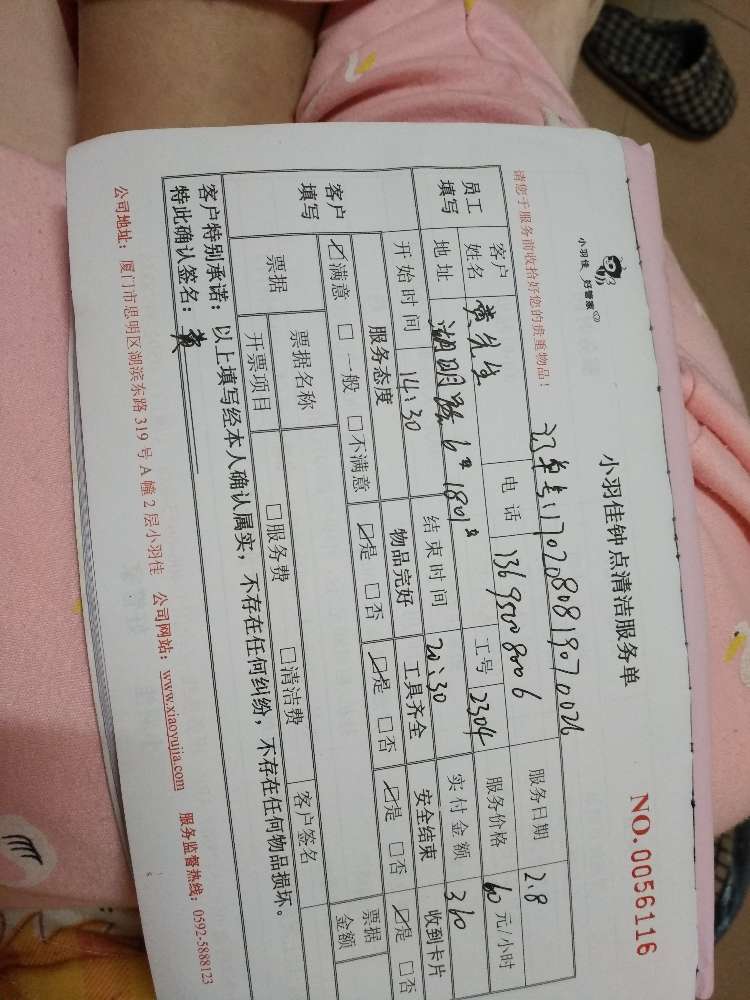 小羽佳 好管家
小羽佳钟点清洁服务单
NO.0056116
请您于服务前收拾好您的贵重物品!
订单号:1702080819070026
员工填写 客户姓名 黄先生 电话 13695008006 服务日期 2.8
地址 湖明路6# 1801# 工号 2304 服务价格 60 元/小时
开始时间 14:30 结束时间 20:30 实付金额 360
客户填写 服务态度 物品完好 工具齐全 安全结束 收到卡片
☑满意 □一般 □不满意 ☑是 □否 ☑是 □否 ☑是 □否 ☑是 □否
票据 票据名称 □服务费 □清洁费 客户签名 票据金额
开票项目
客户特别承诺:以上填写经本人确认属实,不存在任何纠纷,不存在任何物品损坏。
特此确认签名:黄
公司地址:厦门市思明区湖滨东路319号A幢2层小羽佳 公司网站:www.xiaoyujia.com 服务监督热线:0592-5888123